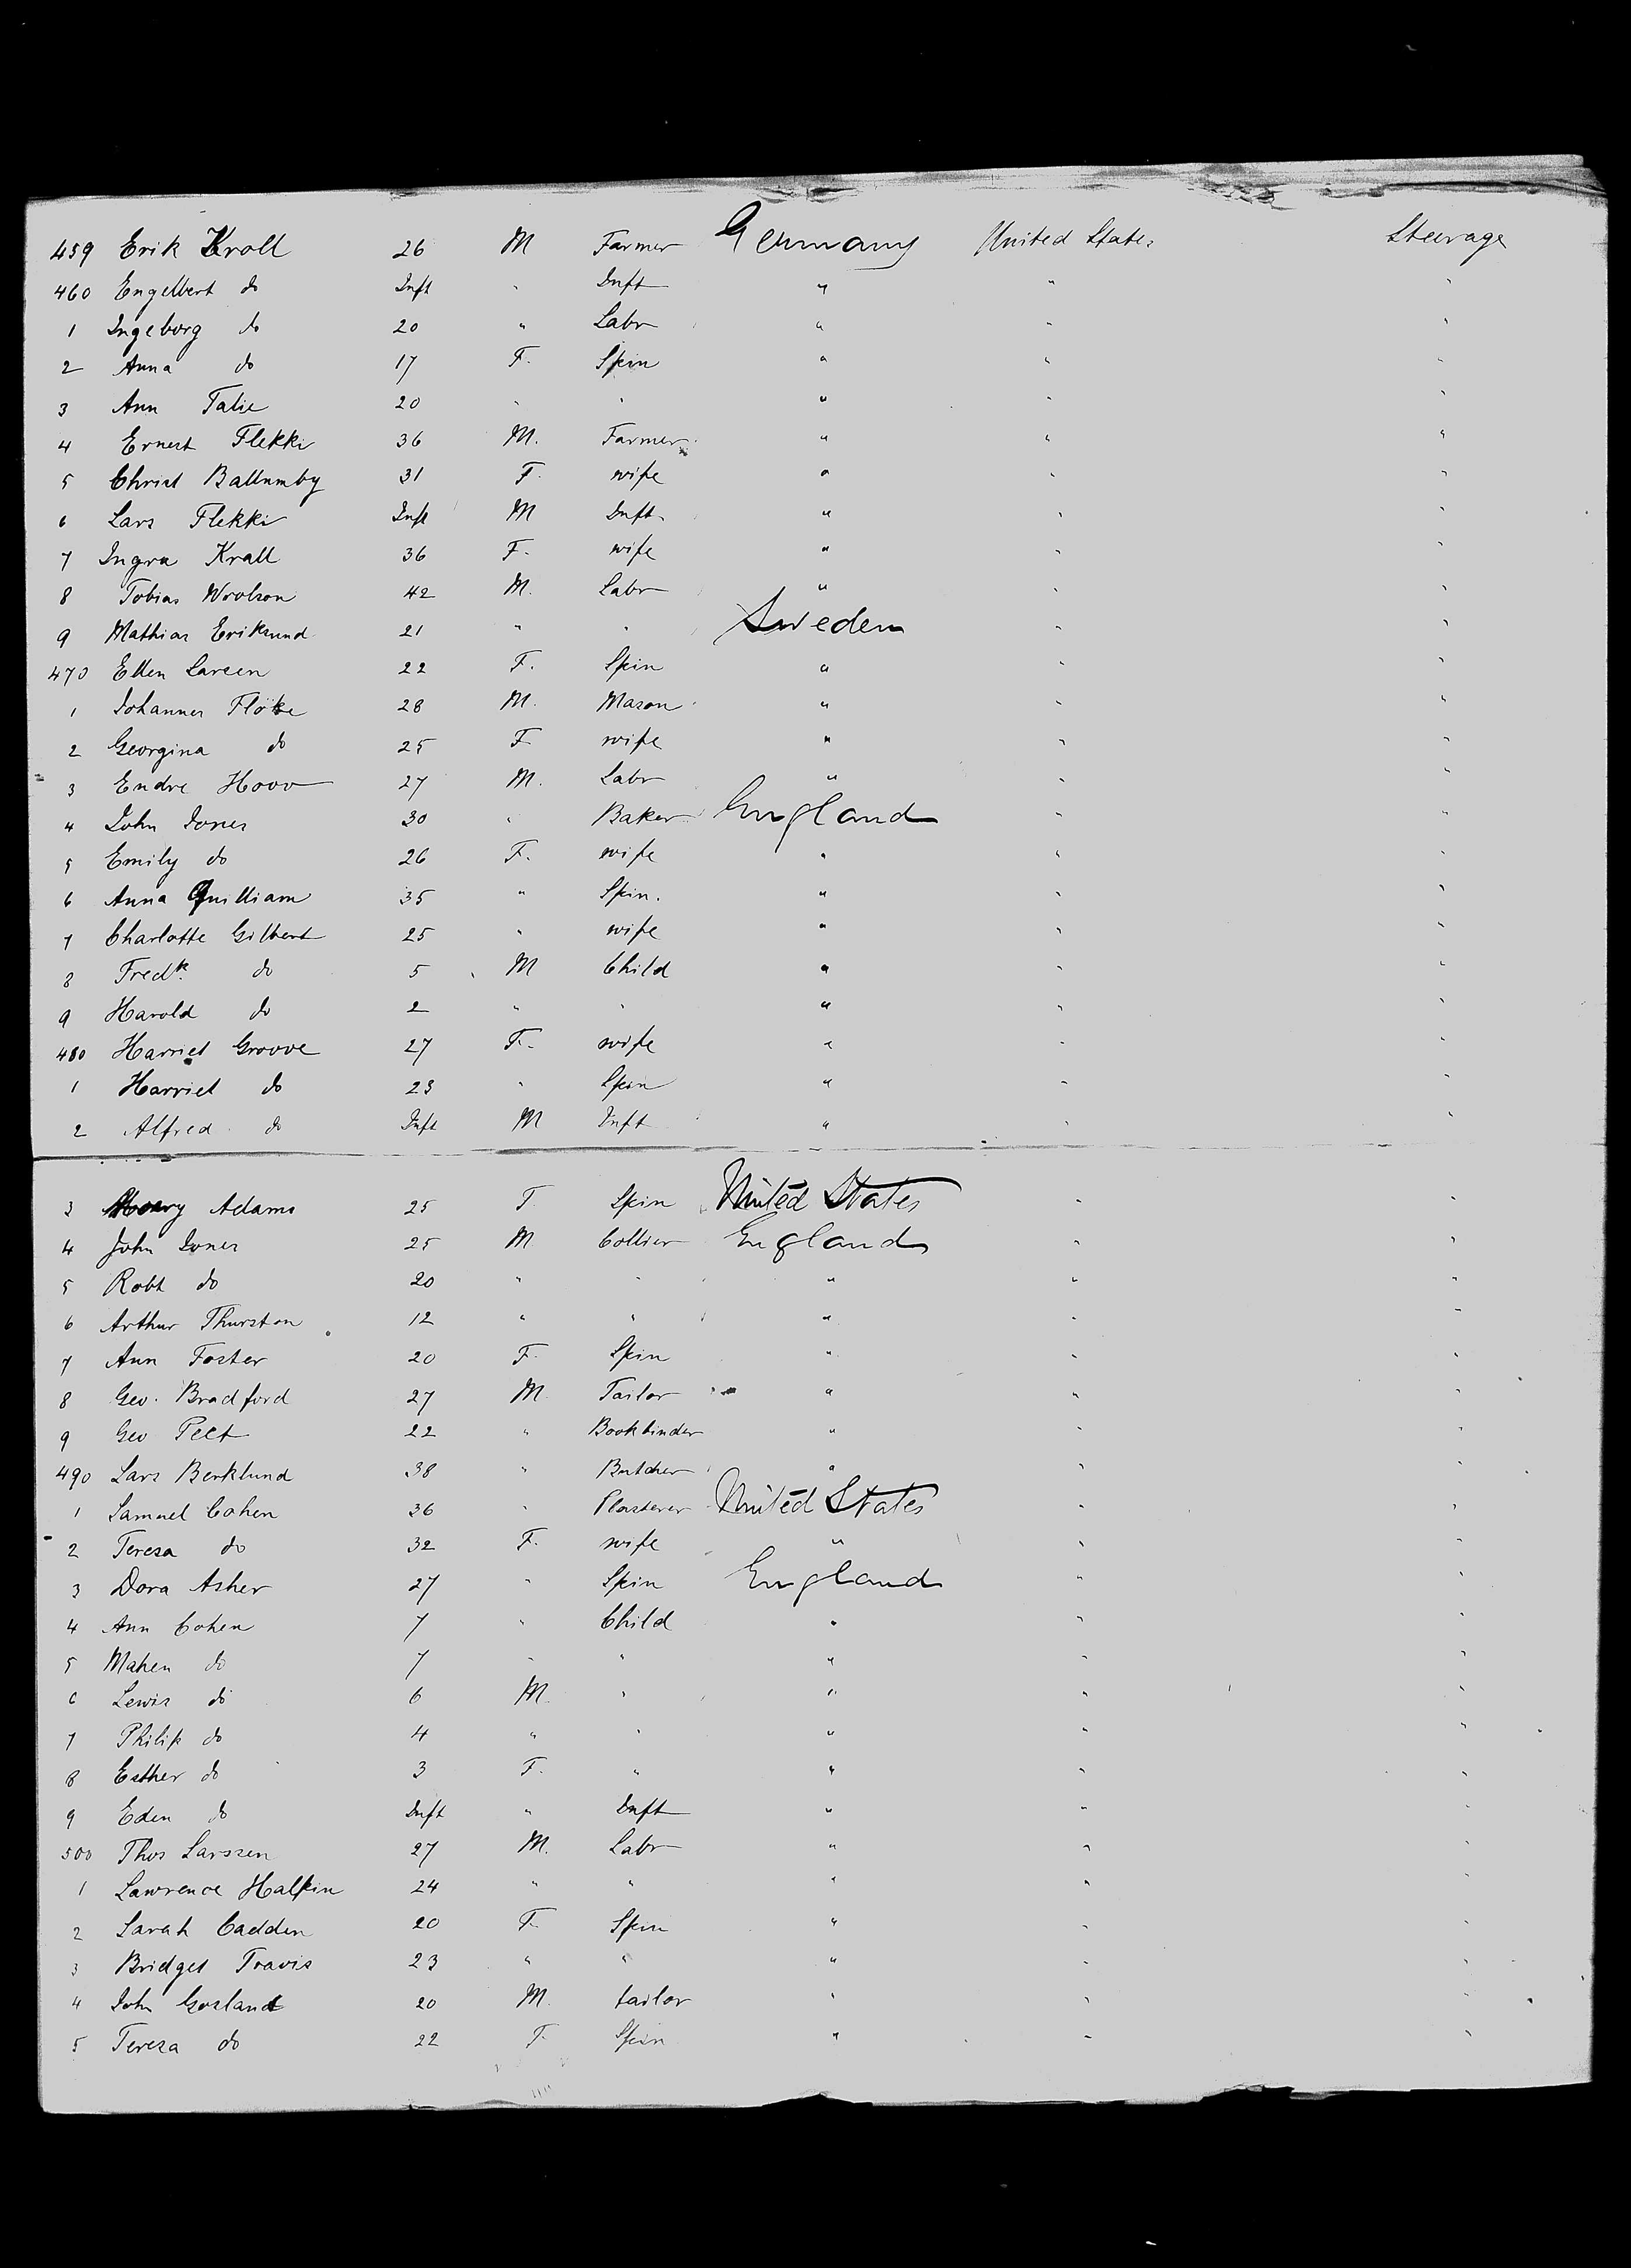 459 Erik Kroll 26 M Farmer Germany United States Steerage
460 Engelbert do Inft " Inft " " "
1 Ingeborg do 20 " Labr " " "
2 Anna do 17 F. Spin " " "
3 Ann Talie 20 " " " " "
4 Ernest Flekki 36 M. Farmer " " "
5 Christ Ballumby 31 F. wife " " "
6 Lars Flekki Inft M Inft. " " "
7 Ingra Krall 36 F. wife " " "
8 Tobias Woolson 42 M. Labr " " "
9 Mathias Eriksund 21 " " Sweden " "
470 Ellen Larsen 22 F. Spin " " "
1 Johannes Floke 28 M. Mason " " "
2 Georgina do 25 F wife " " "
3 Endre Hoov 27 M. Labr " " "
4 John Jones 30 " Baker England " "
5 Emily do 26 F. wife " " "
6 Anna Quilliam 35 " Spin. " " "
7 Charlotte Gilbert 25 " wife " " "
8 Fredk. do 5 M Child " " "
9 Harold do 2 " " " " "
480 Harriet Groove 27 F. wife " " "
1 Harriet do 23 " Spin " " "
2 Alfred do Inft M Inft " " "
3 Adams 25 F. Spin United States " "
4 John Jones 25 M Collier England " "
5 Robt do 20 " " " " "
6 Arthur Thurston 12 " " " " "
7 Ann Foster 20 F. Spin " " "
8 Geo. Bradford 27 M. Tailor " " "
9 Geo Pelt 22 " Bookbinder " " "
490 Lars Berklund 38 " Butcher " " "
1 Samuel Cohen 36 " Plasterer United States " "
2 Teresa do 32 F. wife " " "
3 Dora Asher 27 " Spin England " "
4 Ann Cohen 7 " Child " " "
5 Mahen do 7 " " " " "
6 Lewis do 6 M. " " " "
7 Philip do 4 " " " " "
8 Esther do 3 F. " " " "
9 Eden do Inft " Inft " " "
500 Thos Larssen 27 M. Labr " " "
1 Lawrence Halpin 24 " " " " "
2 Sarah Cadden 20 F. Spin " " "
3 Bridget Travis 23 " " " " "
4 John Gosland 20 M. tailor " " "
5 Teresa do 22 F. Spin " " "